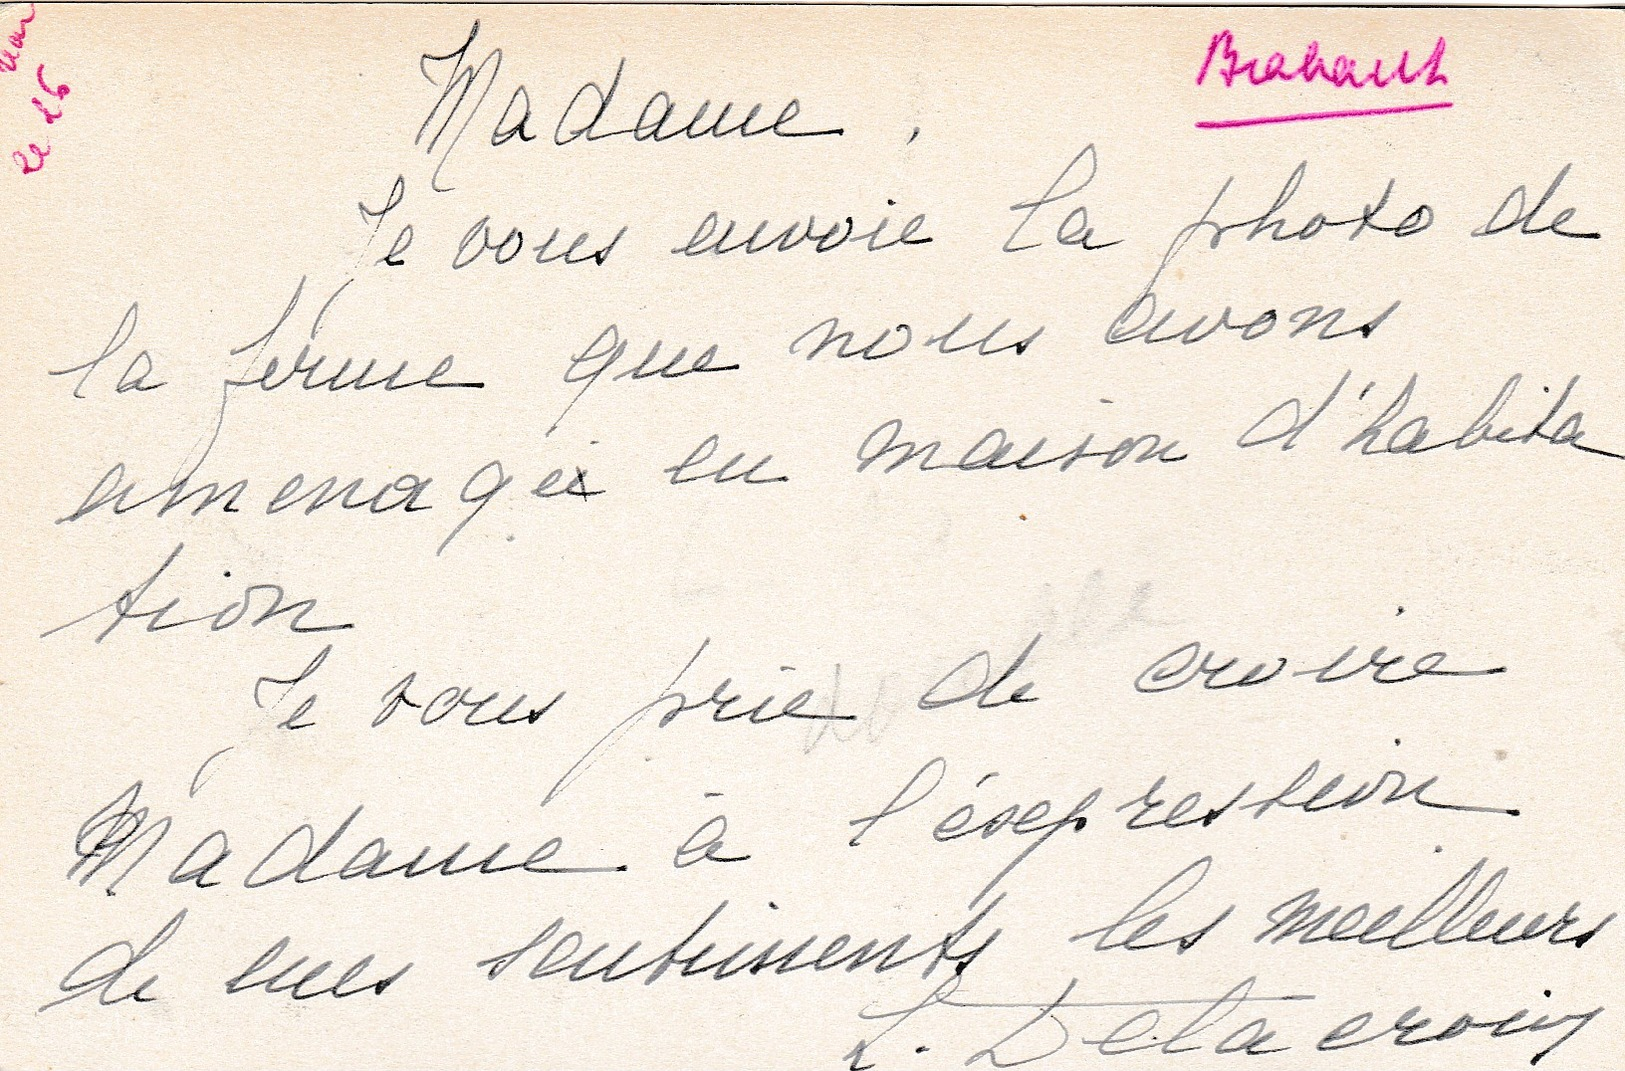 Brabant
Madame,
Je vous envoie la photo de
la ferme que nous avons
amenagé en maison d'habita
tion
Je vous prie de croire
Madame à l'éxpression
de mes sentiments les meilleurs
L. Delacroix